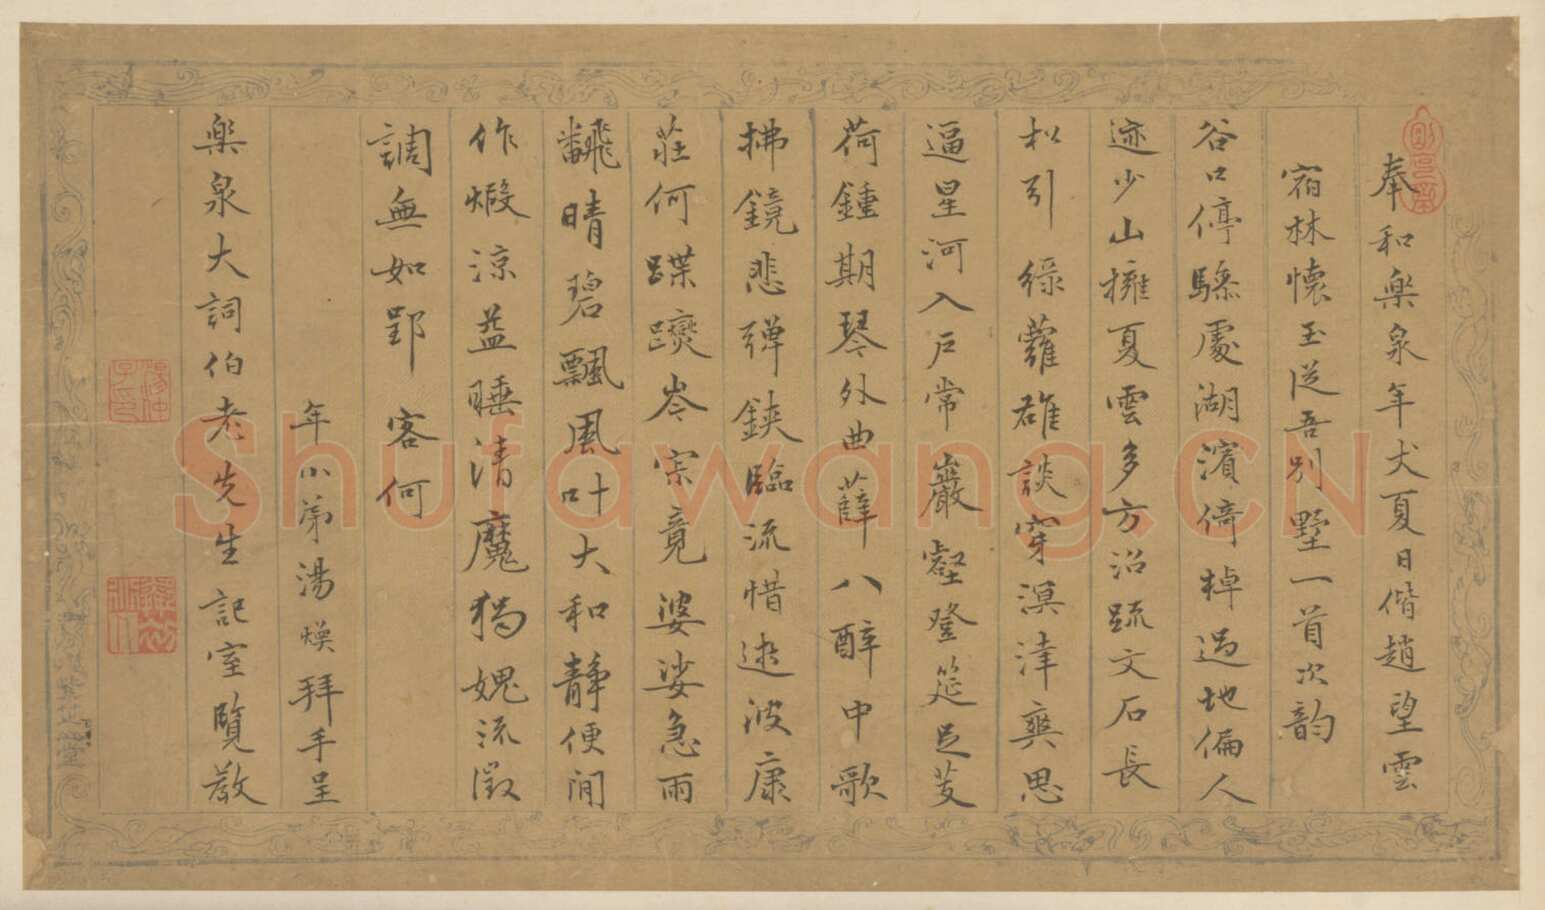 奉和樂泉年丈夏日偕趙望雲
宿林懷玉從吾別墅一首次韵
谷口停驂處湖濱倚棹過地偏人
迹少山擁夏雲多方沼疏文石長
松引綠蘿雄談穿溟涬爽思
逼星河入戶常巖壑登筵足芰
荷鍾期琴外曲薛八醉中歌
拂鏡悲彈鋏臨流惜逝波康
莊何蹀躞岑寂竟婆娑急雨
翻晴碧飄風叶大和靜便閒
作煅涼益睡清魔獨媿流徵
調無如郢客何
年小弟湯煥拜手呈
樂泉大詞伯老先生記室覽教
Shufawang.CN